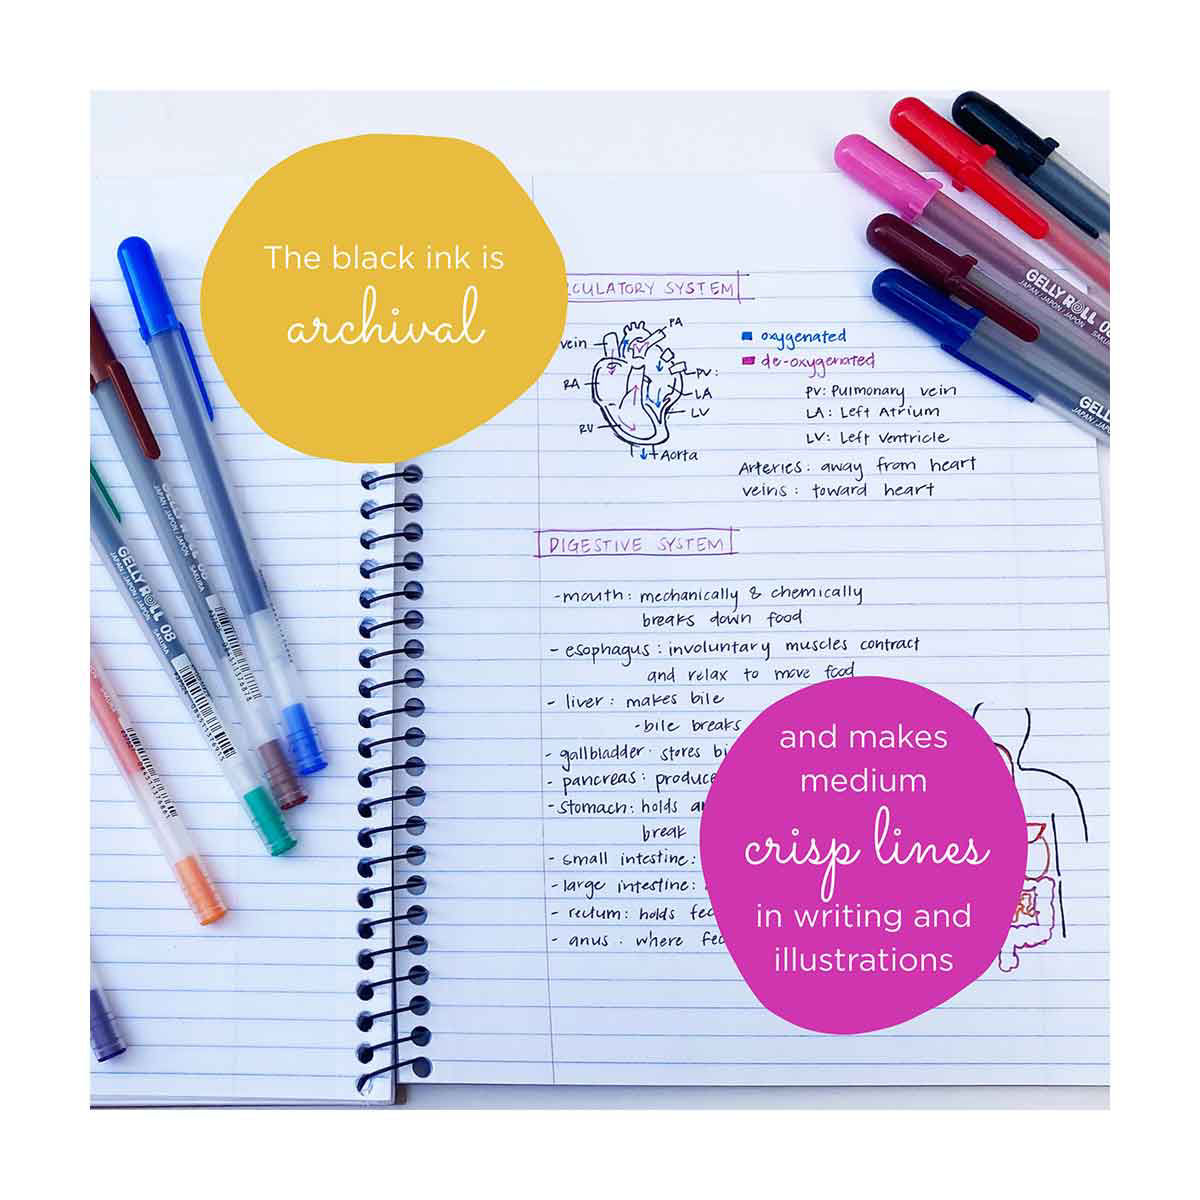 The black ink is
archival
CULATORY SYSTEM
vein
PA
RA
PV:
LA
LV
RV
Aorta
oxygenated
de-oxygenated
PV: Pulmonary vein
LA: Left Atrium
LV: Left Ventricle
Arteries: away from heart
veins: toward heart
DIGESTIVE SYSTEM
-mouth: mechanically & chemically
breaks down food
- esophagus: involuntary muscles contract
and relax to move food
- liver: makes bile
-bile breaks
- gallbladder: stores bi
- pancreas: produce
-stomach: holds
break
- small intestine:
- large intestine:
- rectum: holds fec
- anus: where fec
and makes
medium
crisp lines
in writing and
illustrations
GELLY ROLL 08
JAPAN/JAPON/JAPÓN SAKURA
GELLY ROLL
JAPAN/JAPON
GELLY ROLL 08
JAPAN/JAPON/JAPÓN SAKURA